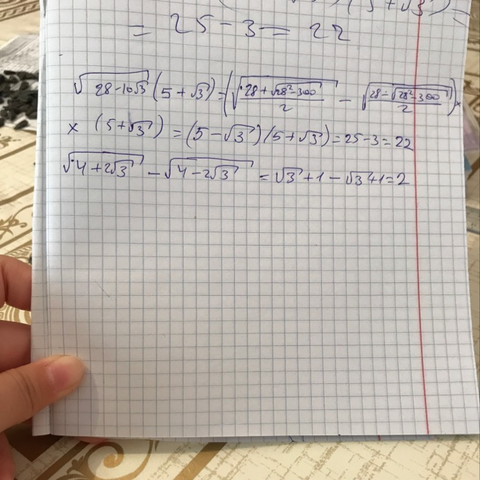 = 25 - 3 = 22
√(28-10√3) (5+√3) = (√((28+√(28²-300))/2) - √((28-√(28²-300))/2)) ×
× (5+√3) = (5-√3)(5+√3) = 25-3 = 22
√(4+2√3) - √(4-2√3) = √3+1-√3+1=2